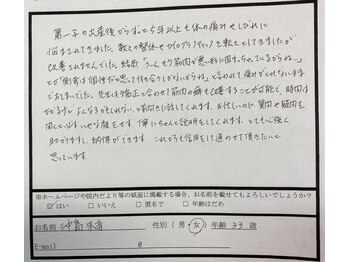 第一子の出産後からずっと5年以上も体の痛みやしびれに
悩まされてきました。数々の整体やカイロプラクティックを転々としてきましたが
改善されませんでした。結局「うーん、もう筋肉が悪い形に固まっちゃっているからね…」
とか「側弯は個性だと思って付き合うしかないからね」と言われて痛みがとれないままで
おしまいでした。先生は矯正と合わせて筋肉の癖も改善することが可能で、時間は
かかるけどよくなるかもしれない、と前向きに話してくれます。お忙しいのに質問や疑問を
聞くといやな顔をせず丁寧にちゃんと説明をしてくれます。とても心強く、
助かりますし、納得ができます。これからも信頼をして通わせて頂きたいと
思っています。
※ホームページや院内だより等の紙面に掲載する場合、お名前を載せてもよろしいでしょうか？
☑はい □いいえ □匿名で □年齢はだめ
お名前 性別（ 男 ・ 女 ）年齢 33 歳
E-mail @